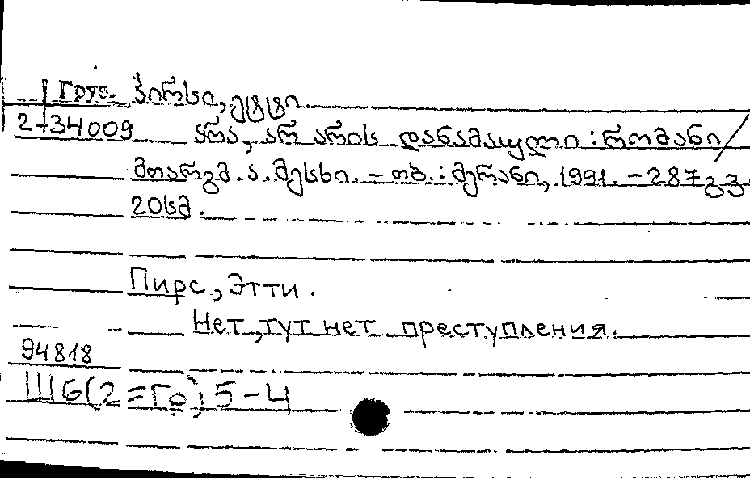 Груз. პირსი, ეტტი.
2-34009 არა, არ არის დანაშაული : რომანი /
მთარგმ. ა. მესხი. - თბ. : მერანი, 1991. - 287 გვ.
20სმ.
Пирс, Этти.
Нет, тут нет преступления.
94818
Ш6(2=Го)5-4